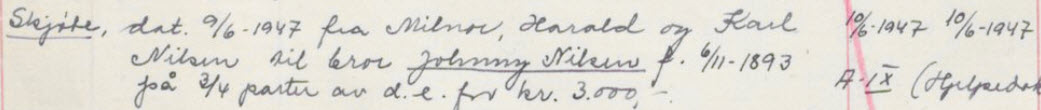 Skjøte, dat. 9/6-1947 fra Milnor, Harald og Karl 10/6-1947 10/6-1947
Nilsen til bror Johnny Nilsen f. 6/11-1893
på 3/4 parter av d.e. for kr. 3.000,- A-IX (Hjelpedok